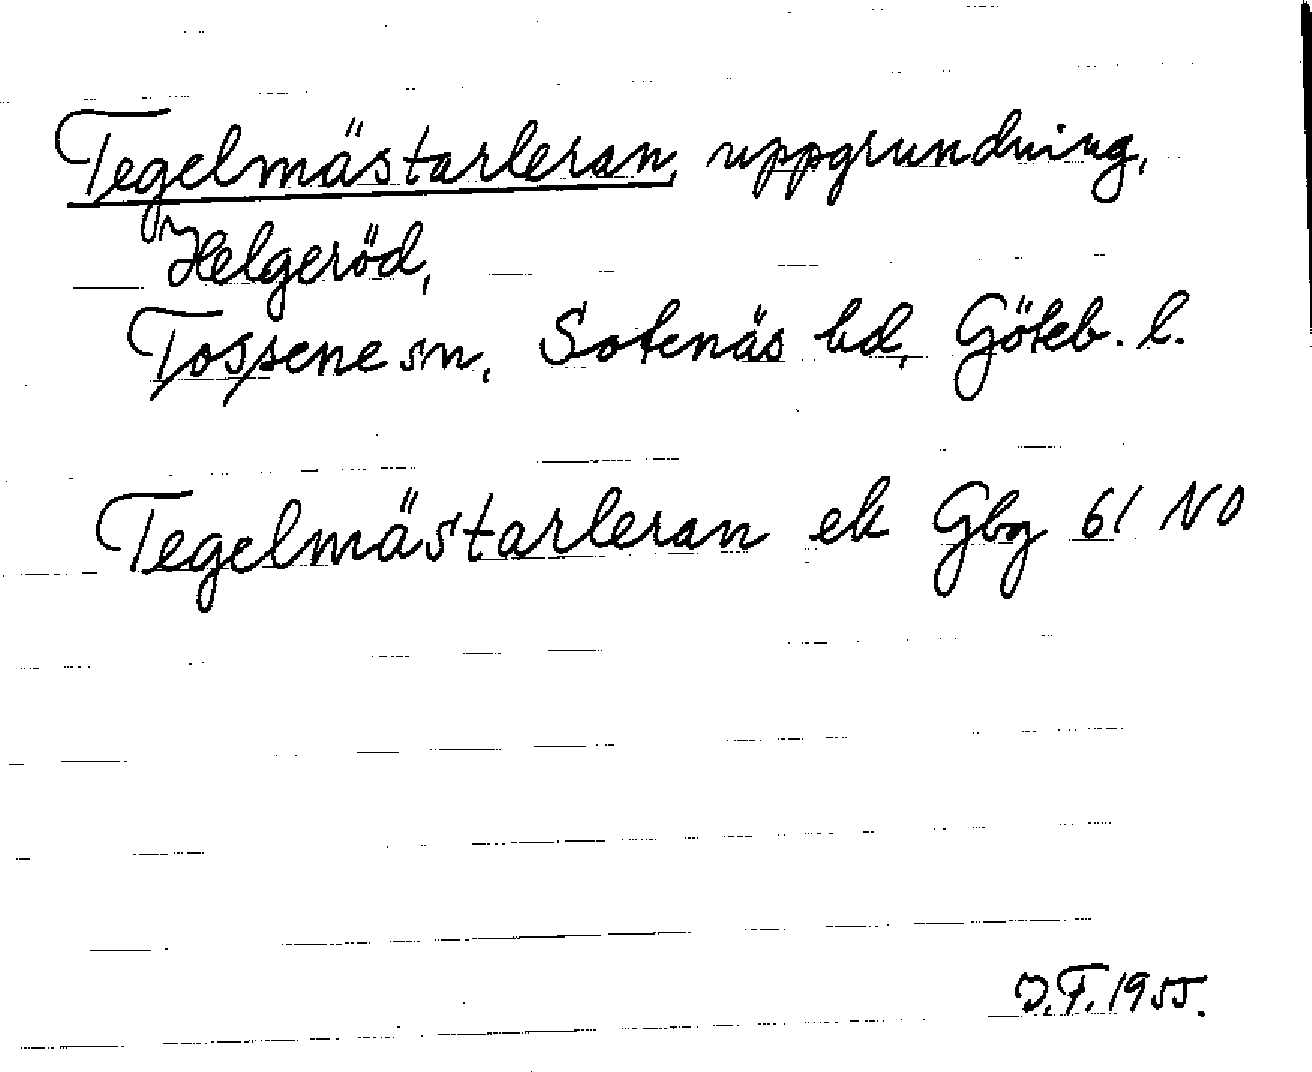 Tegelmästarleran, uppgrundning,
Helgeröd,
Tossene sn, Sotenäs hd, Göteb. l.
Tegelmästarleran ek Gbg 61 NO
D.F. 1955.